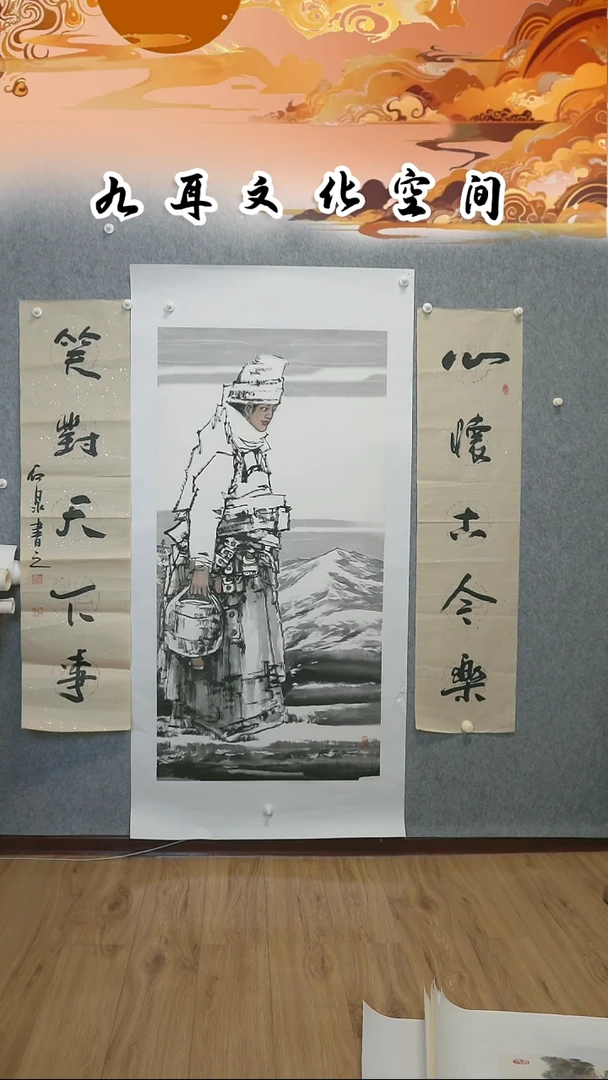 九耳文化空间
心懷古今樂
笑對天下事
石泉書之